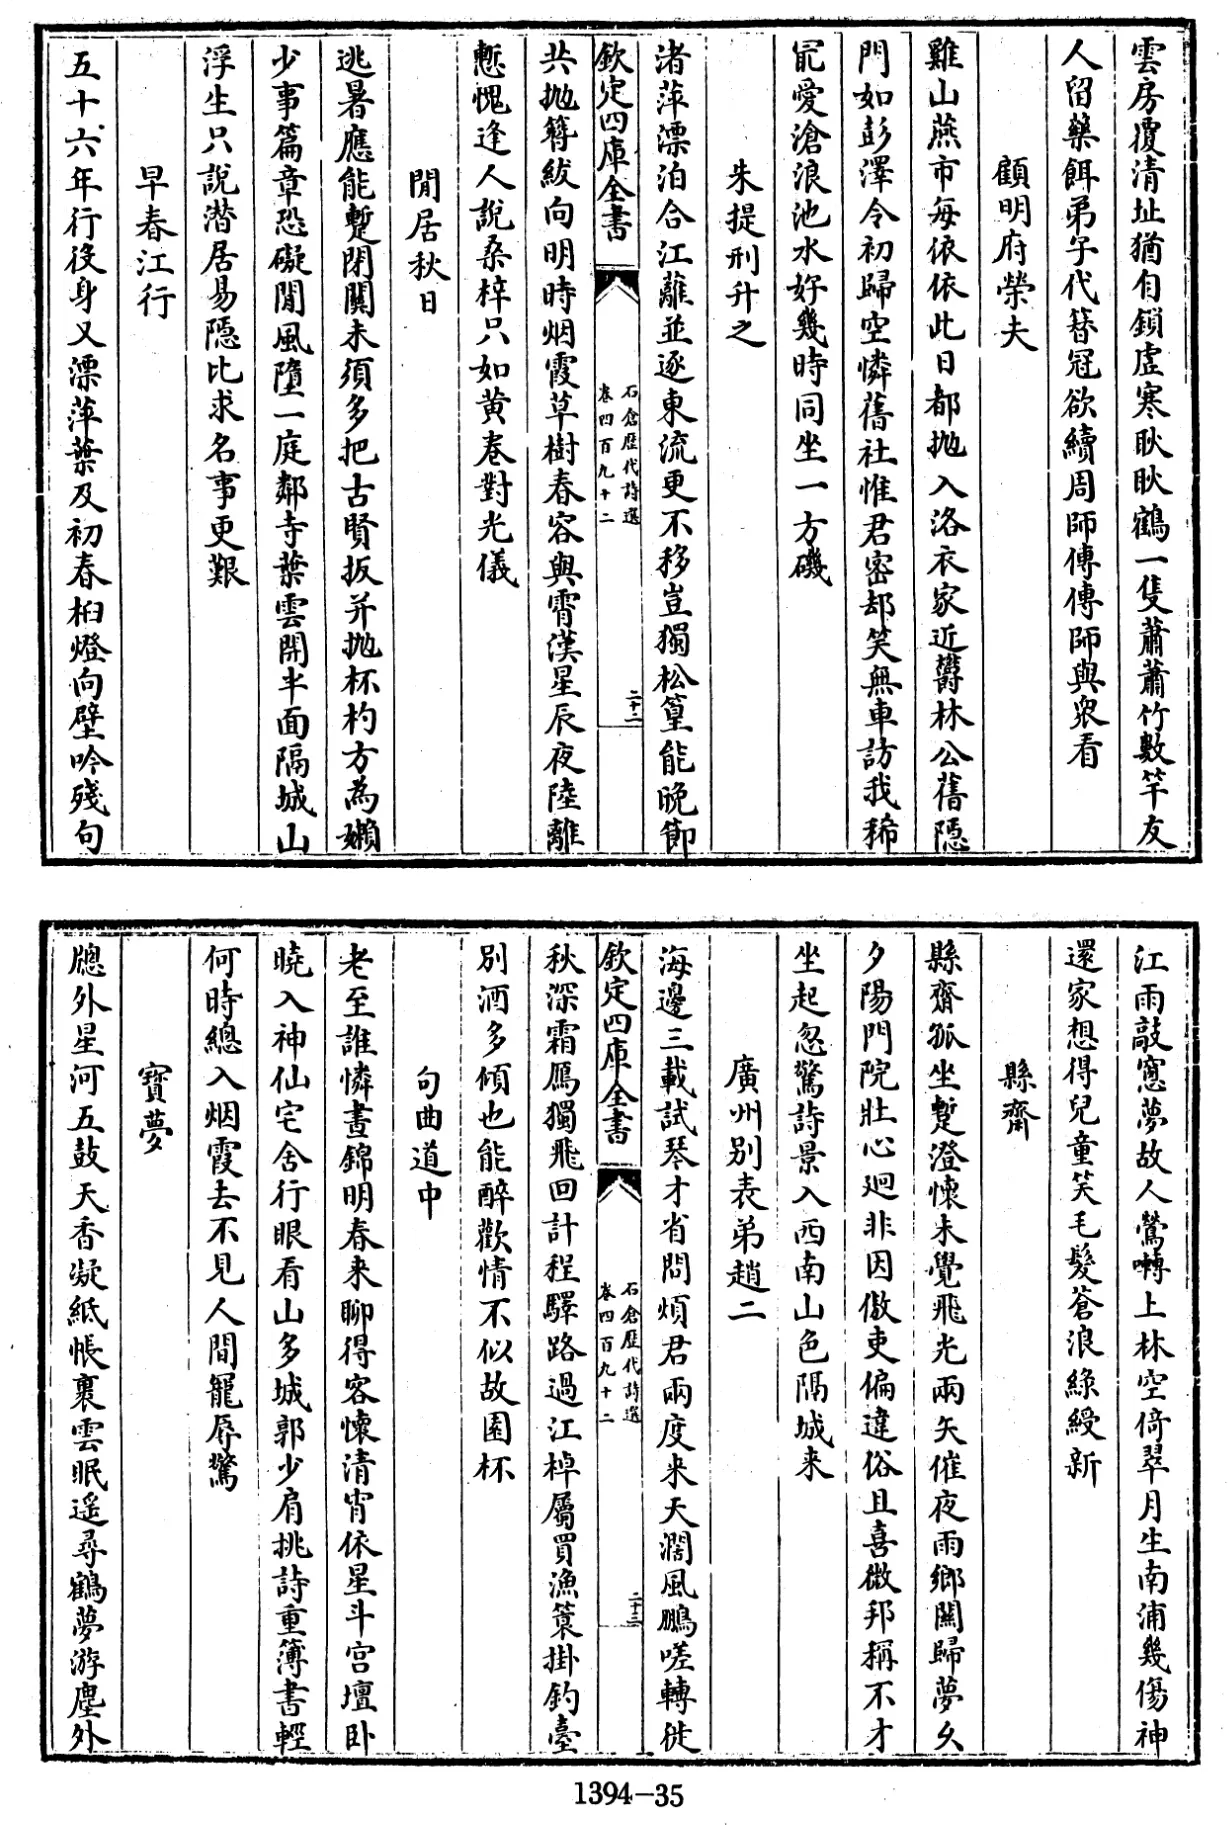 雲房覆清址猶自鎖虛寒耿耿鶴一隻蕭蕭竹數竿友
人留藥餌弟子代簪冠欲續周師傳傳師與衆看
顧明府榮夫
雞山燕市每依依此日都抛入洛衣家近鬱林公舊隠
門如彭澤令初歸空憐舊社惟君密却笑無車訪我稀
最愛滄浪池水好幾時同坐一方磯
朱提刑升之
渚萍漂泊合江蘺並逐東流更不移豈獨松篁能晚節
欽定四庫全書
石倉歴代詩選
卷四百九十二
二十二
共抛簪紱向明時烟霞草樹春容與霄漢星辰夜陸離
慙愧逢人說桑梓只如黄卷對光儀
閒居秋日
逃暑應能蹔閉關未須多把古賢扳并抛杯杓方為嬾
少事篇章恐礙閒風墮一庭鄰寺葉雲開半面隔城山
浮生只說潛居易隠比求名事更艱
早春江行
五十六年行役身又漂萍葉及初春桕燈向壁吟殘句
江雨敲窻夢故人鶯囀上林空倚翠月生南浦幾傷神
還家想得兒童笑毛髮蒼浪綠綬新
縣齋
縣齋孤坐蹔澄懐未覺飛光兩矢催夜雨鄉關歸夢久
夕陽門院壯心廻非因傲吏偏違俗且喜微邦稱不才
坐起忽驚詩景入西南山色隔城来
廣州別表弟趙二
海邊三載試琴才省問煩君兩度来天濶風鵬嗟轉徙
欽定四庫全書
石倉歴代詩選
卷四百九十二
二十三
秋深霜鴈獨飛回計程驛路過江棹屬買漁簑掛釣臺
別酒多傾也能醉歡情不似故園杯
句曲道中
老至誰憐晝錦明春来聊得客懐清宵依星斗宫壇卧
曉入神仙宅舍行眼看山多城郭少肩挑詩重簿書輕
何時總入烟霞去不見人間寵辱驚
寳夢
牕外星河五鼓天香凝紙帳裹雲眠遥尋鶴夢游塵外
1394-35